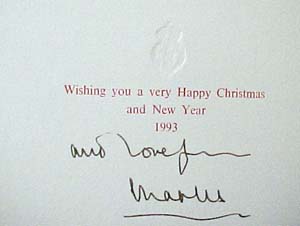 Wishing you a very Happy Christmas
and New Year
1993
and love from
Charles